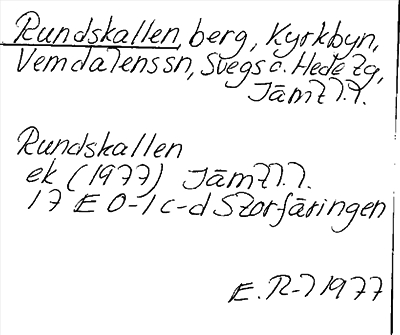 Rundskallen, berg, Kyrkbyn,
Vemdalens sn, Svegs o. Hede tg,
Jämtl.l.
Rundskallen
ek (1977) Jämtl.l.
17 E 0-1 c-d Storfäringen
E. R-l 1977